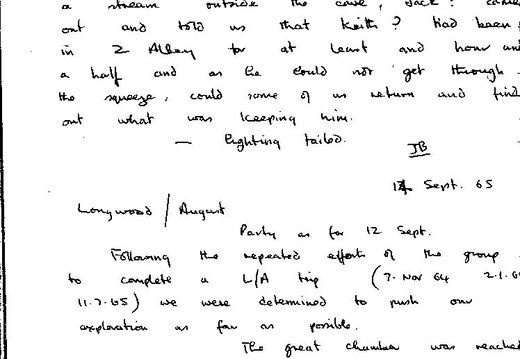 a stream outside the cave, Jack? came
out and told us that Keith? Had been
in Z Alley for at least and hour and
a half and as he could not get through
the squeeze, could some of us return and find
out what was keeping him.
— lighting failed.
JB
14 Sept. 65
Longwood / August
Party as for 12 Sept.
Following the repeated efforts of the group
to complete a L/A trip (7. Nov 64 2.1.6
11.7.65) we were determined to push our
exploration as far as possible.
The great chamber was reached